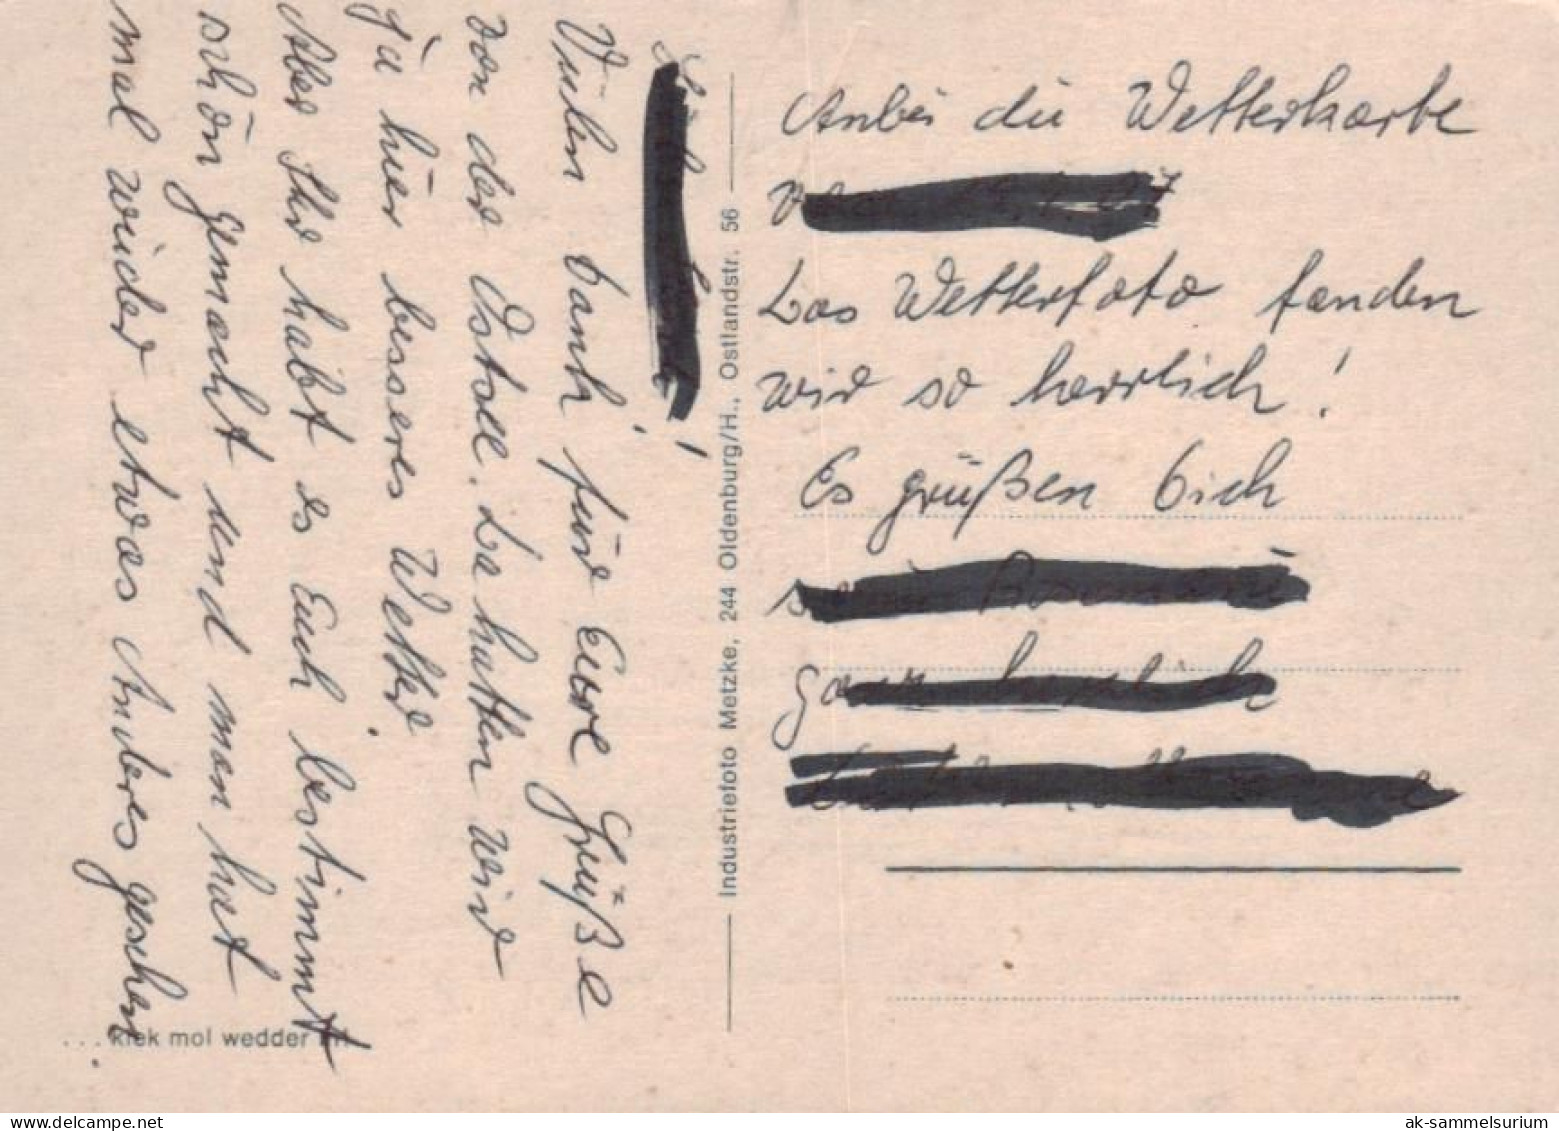 !
Vielen Dank für Eure Grüße
von der Ostsee. Da hatten wir
ja hier besseres Wetter.
Aber Ihr habt es Euch bestimmt
schön gemacht und man hat
mal wieder etwas Anderes gesehen
.
... kiek mol wedder in
Industriefoto Metzke, 244 Oldenburg/H., Ostlandstr. 56
Anbei die Wetterkarte
Das Wetterfoto fanden
wir so herrlich!
Es grüßen Dich
ak-sammelsurium